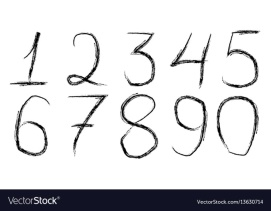 12345
67890
VectorStock®
VectorStock.com/13630714